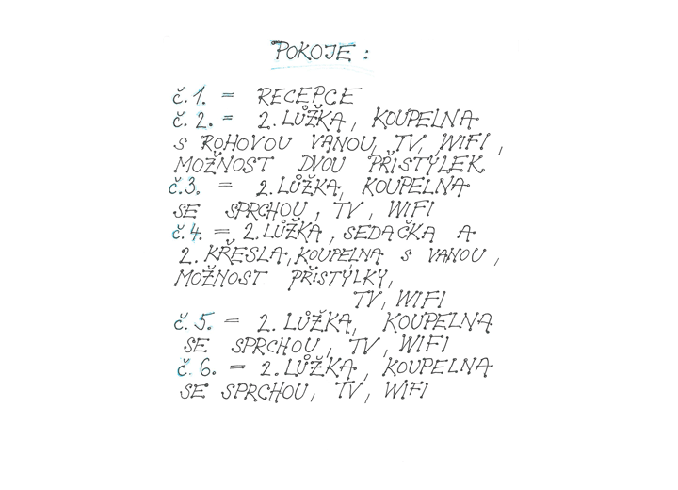 POKOJE :
č. 1. = RECEPCE
č. 2. = 2. LŮŽKA, KOUPELNA
S ROHOVOU VANOU, TV, WIFI,
MOŽNOST DVOU PŘISTÝLEK
č. 3. = 2. LŮŽKA, KOUPELNA
SE SPRCHOU, TV, WIFI
č. 4. = 2. LŮŽKA, SEDAČKA A
2. KŘESLA, KOUPELNA S VANOU,
MOŽNOST PŘISTÝLKY,
TV, WIFI
č. 5. = 2. LŮŽKA, KOUPELNA
SE SPRCHOU, TV, WIFI
č. 6. = 2. LŮŽKA, KOUPELNA
SE SPRCHOU, TV, WIFI